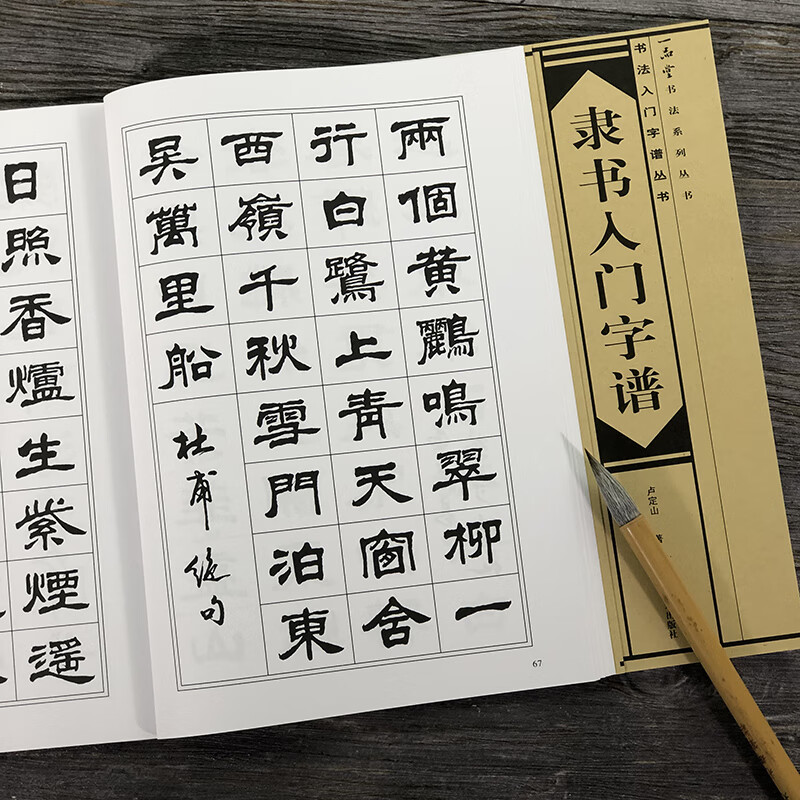 一品堂书法系列丛书
书法入门字谱丛书
隶书入门字谱
卢定山 著
出版社
兩個黄鸝鳴翠柳一
行白鷺上青天窗含
西嶺千秋雪門泊東
吳萬里船
杜甫 絕句
67
日照香爐生紫煙遥